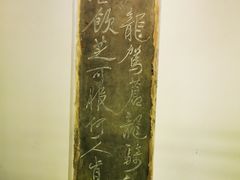 龍駕蒼龍騎
飲芝可服何人肯